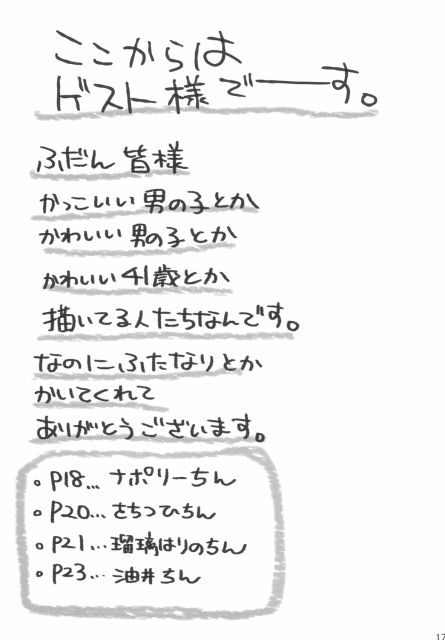 ここからは
ゲスト様でーーす。
ふだん 皆様
かっこいい 男の子とか
かわいい 男の子とか
かわいい 41歳とか
描いてる人たちなんです。
なのに ふたなりとか
かいてくれて
ありがとうございます。
。P18... ナポリーちん
。P20... さちつひちん
。P21... 瑠璃はりのちん
。P23... 油井ちん
17